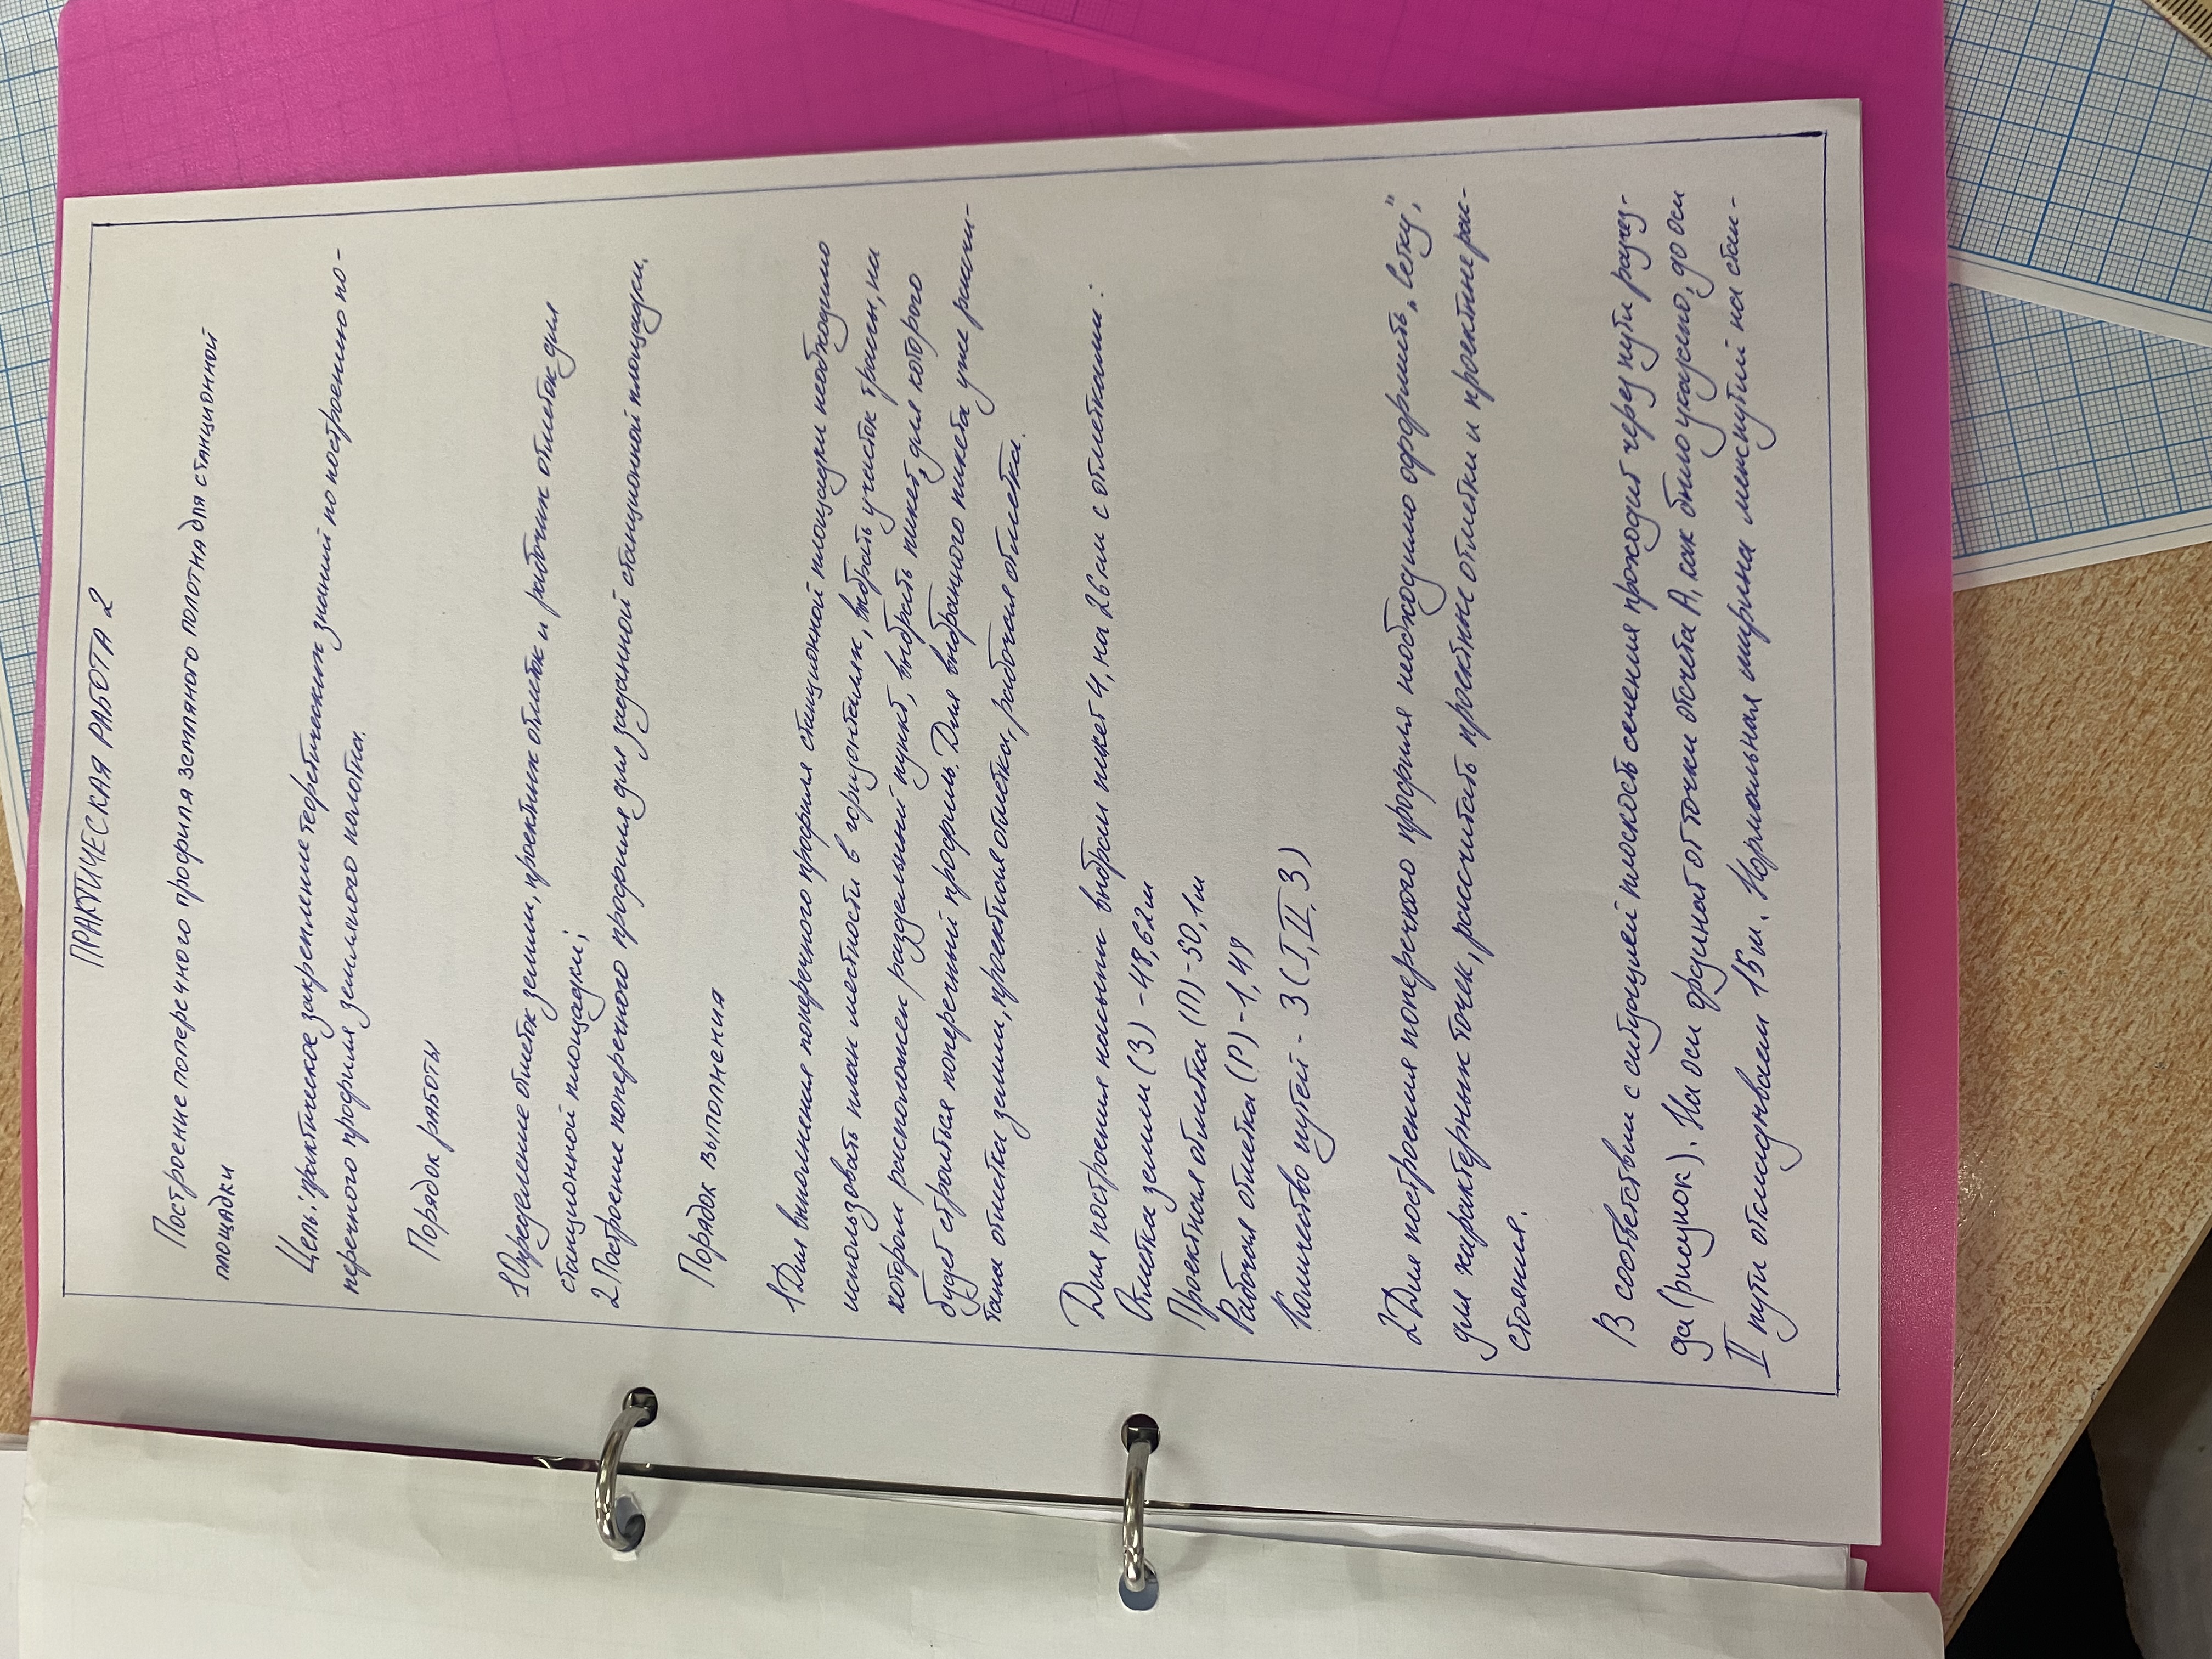 ПРАКТИЧЕСКАЯ РАБОТА 2
Построение поперечного профиля земляного полотна для станционной
площадки
Цель: практическое закрепление теоретических знаний по построению по-
перечного профиля земляного полотна.
Порядок работы
1 Определение отметок земли, проектных отметок и рабочих отметок для
станционной площадки;
2. Построение поперечного профиля для заданной станционной площадки.
Порядок выполнения
1 Для выполнения поперечного профиля станционной площадки необходимо
использовать план местности в горизонталях, выбрать участок трассы, на
котором расположен раздельный пункт, выбрать пикет, для которого
будет строиться поперечный профиль. Для выбранного пикета уже рассчи-
таны отметка земли, проектная отметка, рабочая отметка.
Для построения насыпи выбрали пикет 4, на 26 км с отметками:
Отметка земли (З) - 48,62 м
Проектная отметка (П) - 50,1 м
Рабочая отметка (Р) - 1,48
Количество путей - 3 (I, II, 3)
2 Для построения поперечного профиля необходимо оформить „сетку",
для характерных точек, рассчитать проектные отметки и проектные рас-
стояния.
В соответствии с ситуацией плоскость сечения проходит через пути разъез-
да (рисунок). На оси ординат от точки отсчёта А, как было указано, до оси
II пути откладываем 15 м. Нормальная ширина междупутий на стан-